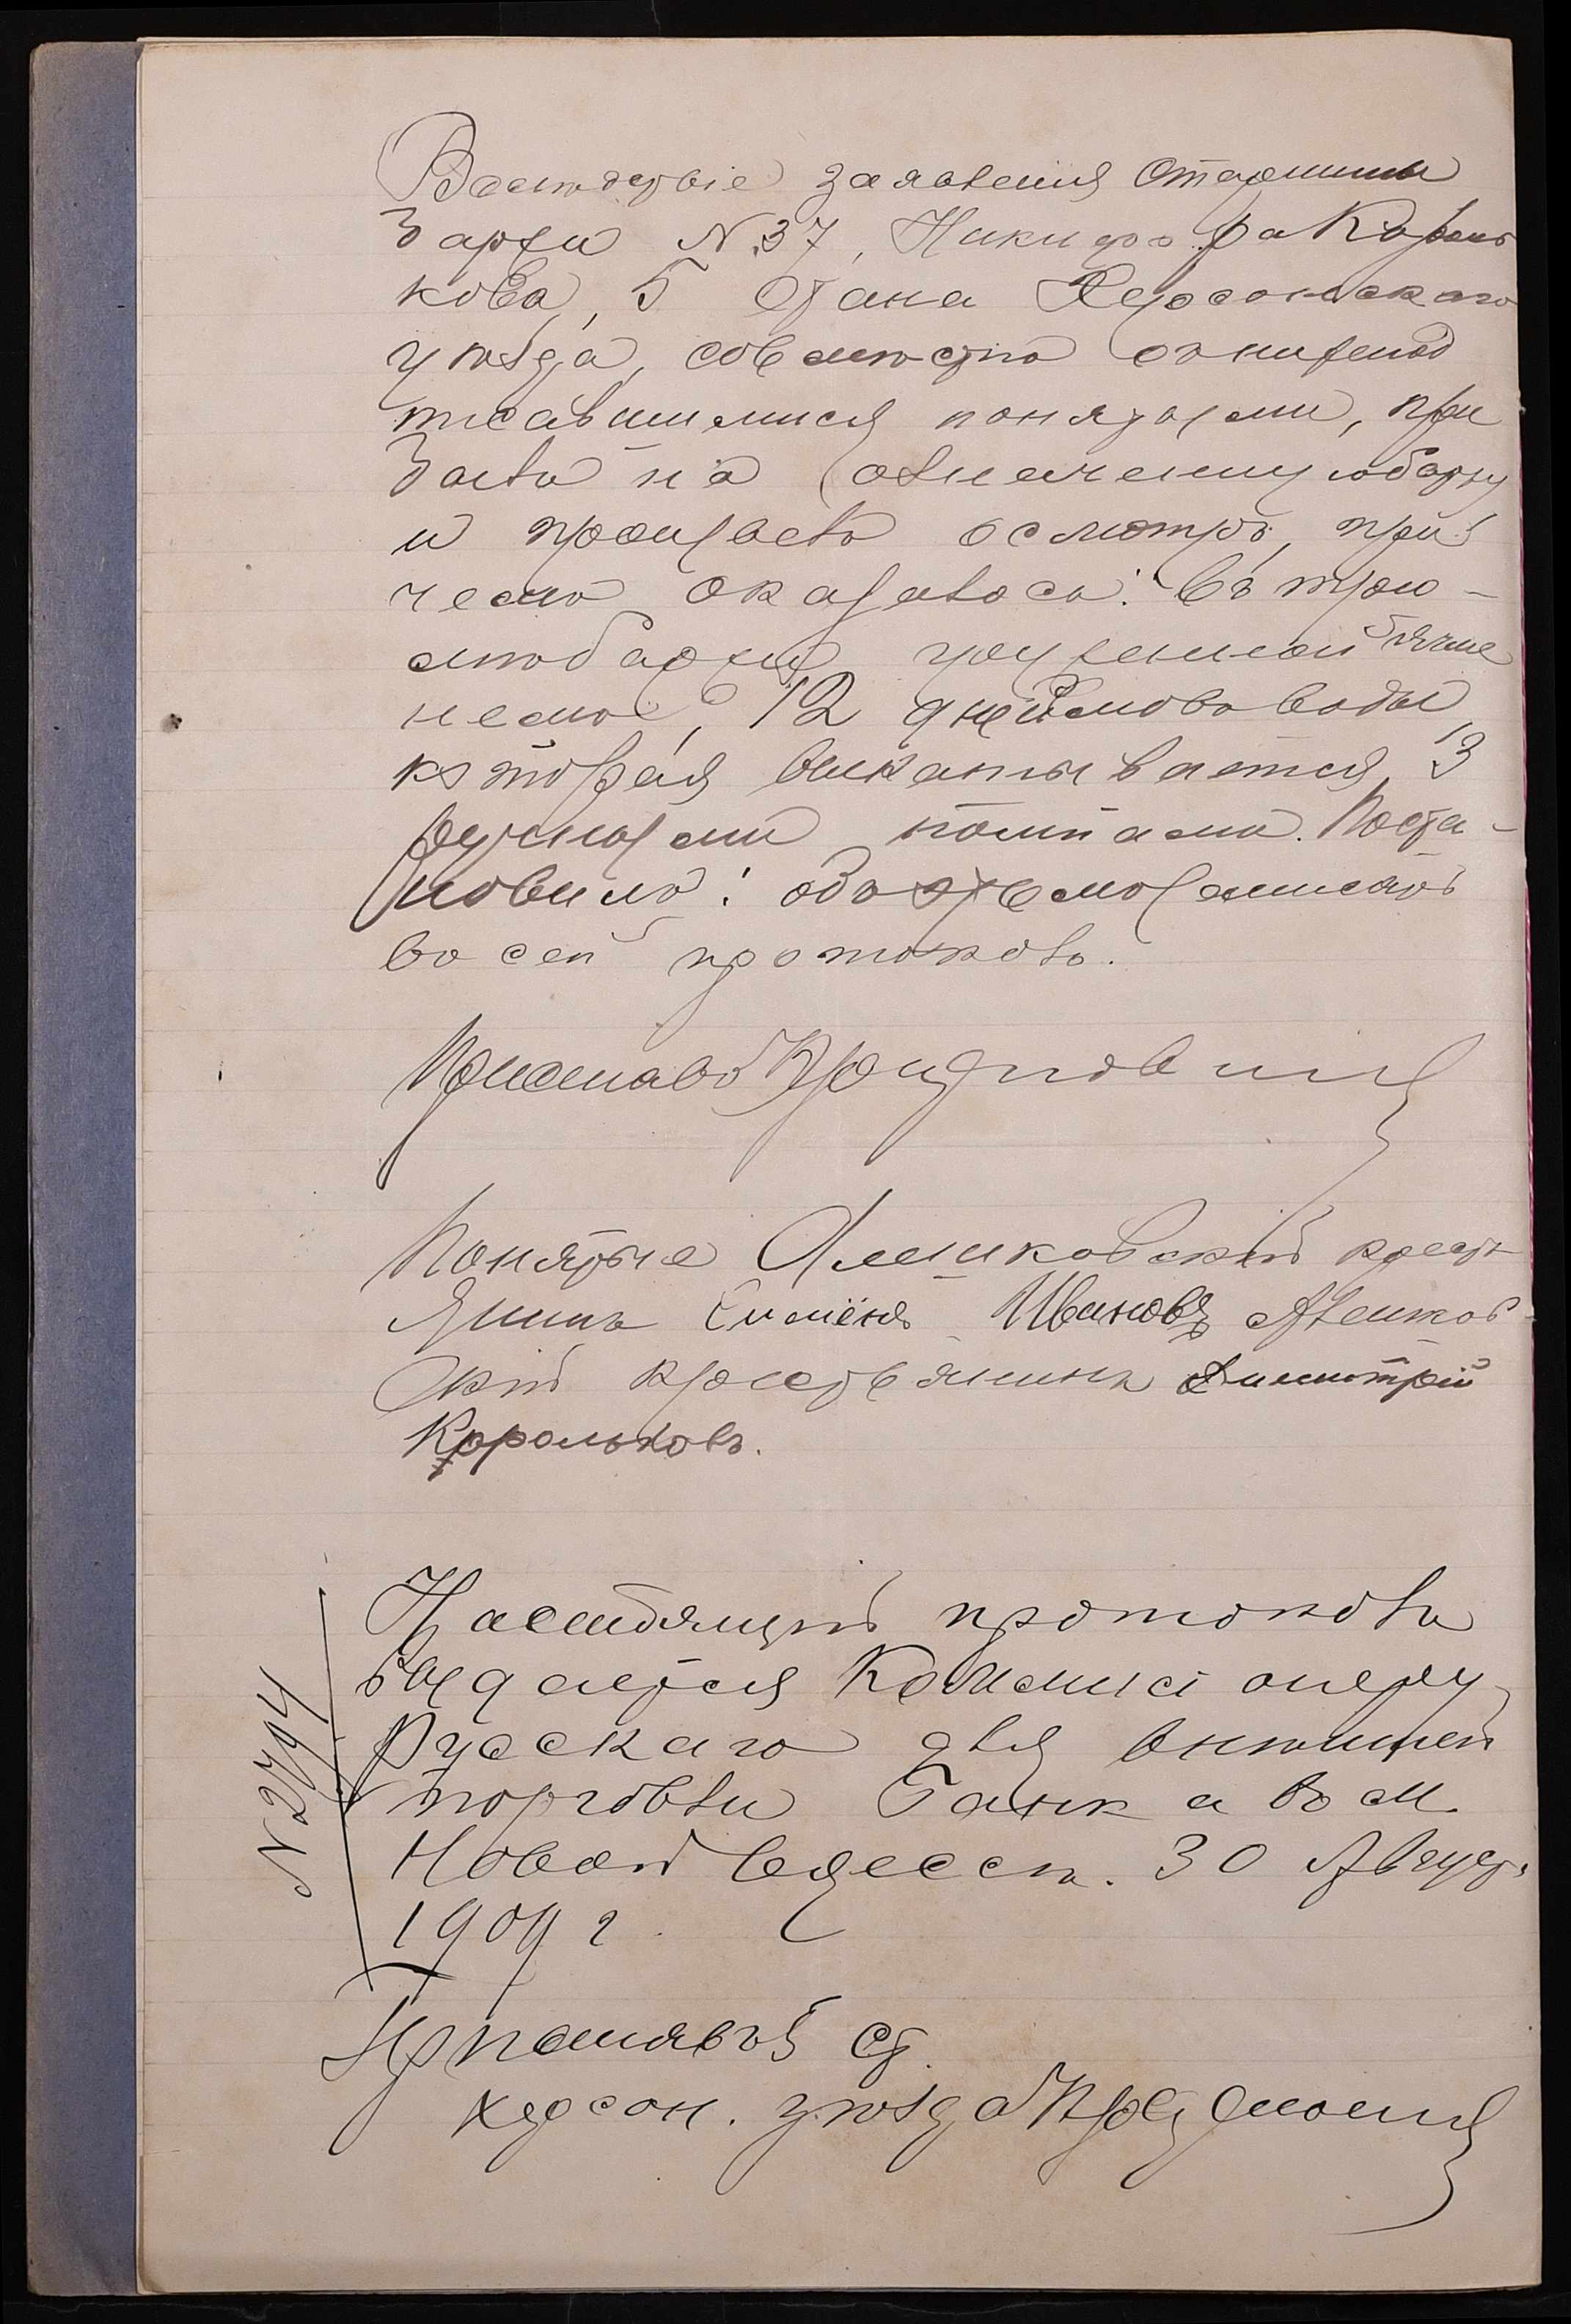 Вслѣдствіе заявленія Старшины
баржи № 37, Никифора Король
кова, 5 Стана Херсонскаго
уѣзда, совмѣстно съ нижепод
писавшимися понятыми, при
былъ на означенную баржу
и произвелъ осмотръ, при
чемъ оказалось: въ трю-
мѣ баржи, груженной ячме
немъ, 12 дюймовъ воды
которая выкатывается 3
ручными помпами. Поста-
новилъ: объ этомъ записать
въ сей протоколъ.
Приставъ
Понятые крестья
янинъ Симёнъ Ивановъ
скій крестьянинъ Димитрій
Корольковъ.
Настоящій протоколъ
выдается Коммисіонеру
Русскаго для внѣшней
торговли Банка въ м.
Новой Одессѣ. 30 Августа
1909 г.
Приставъ 5 ст.
Херсон. уѣзда